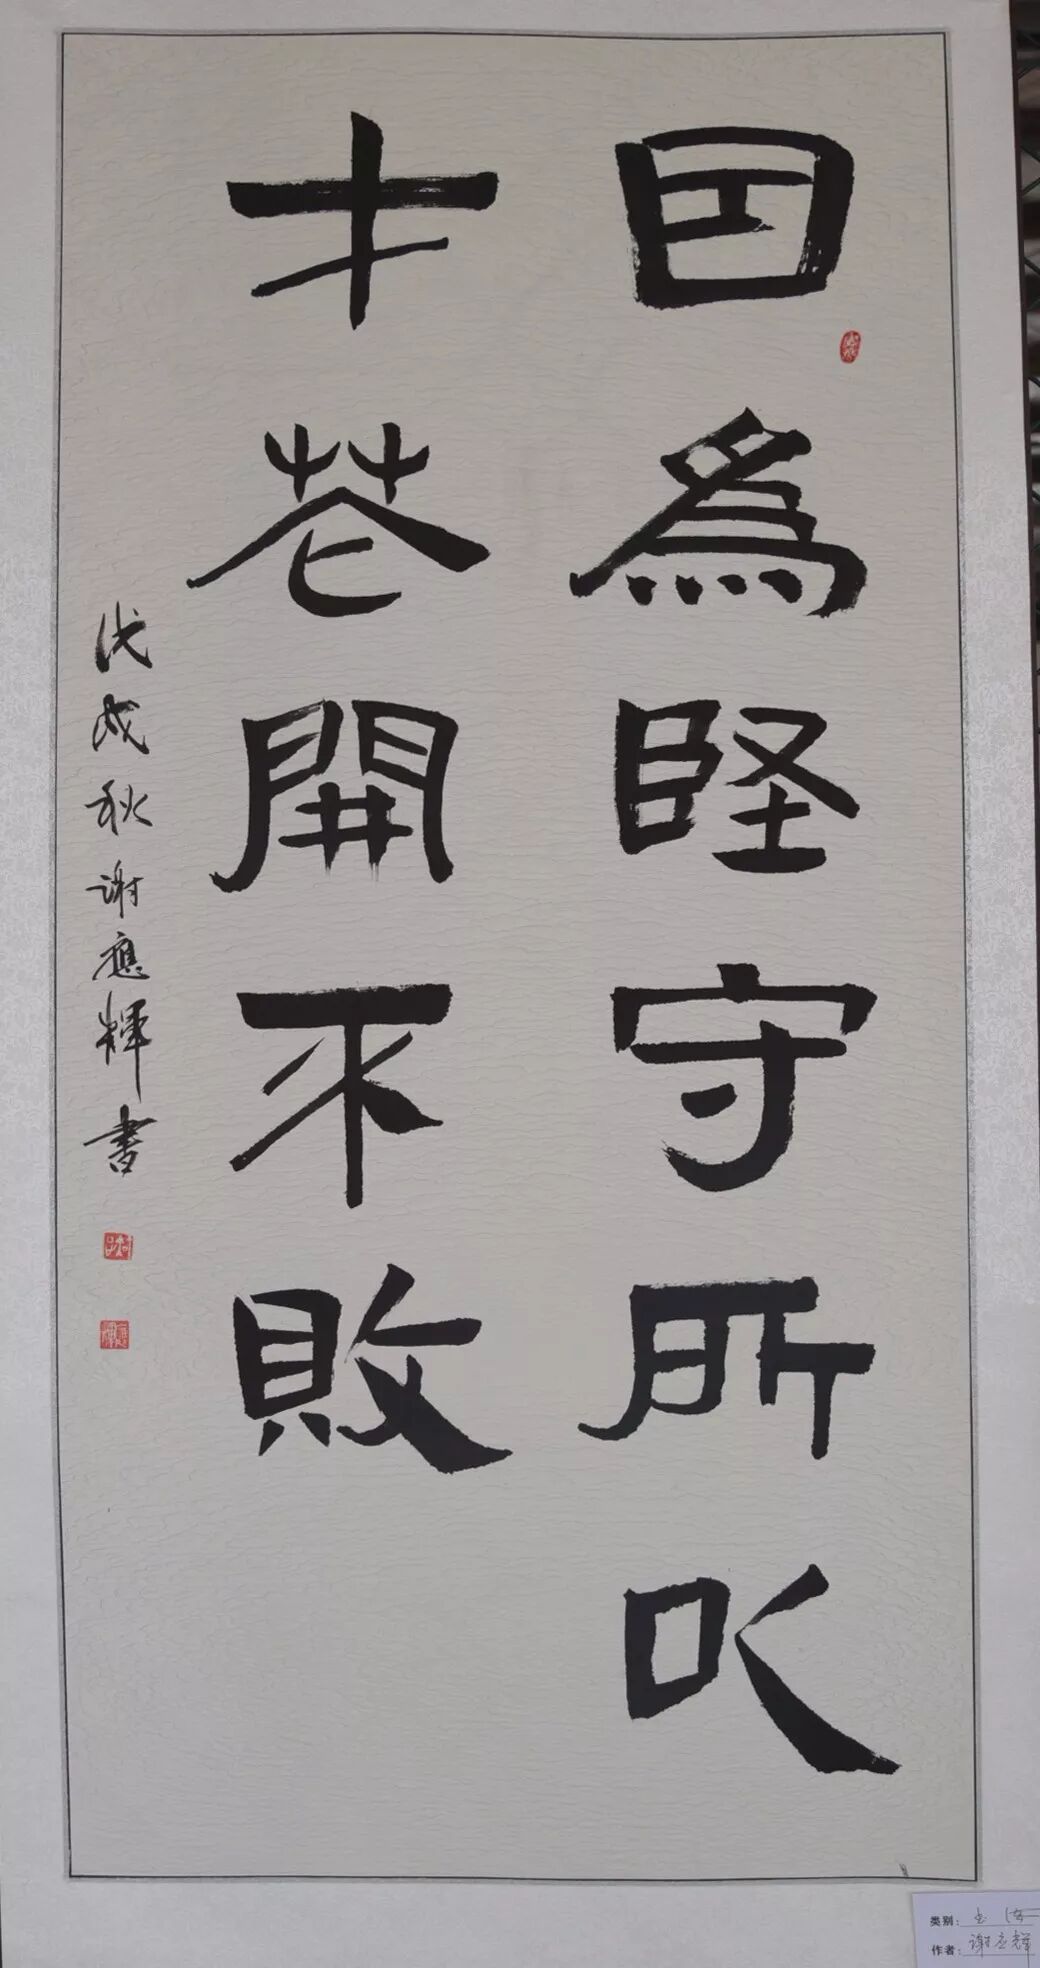 因為堅守所以
才花開不敗
戊戌秋谢應輝書
类别：书法
作者：谢应辉